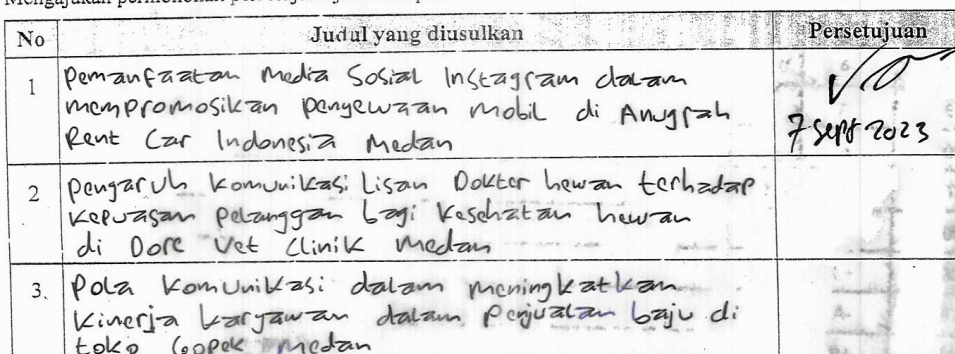 No Judul yang diusulkan Persetujuan
1 Pemanfaatan Media Sosial Instagram dalam
mempromosikan Penyewaan Mobil di Anugrah
Rent Car Indonesia Medan
7 Sept 2023
2 Pengaruh Komunikasi Lisan Dokter hewan terhadap
Kepuasan Pelanggan bagi Kesehatan hewan
di Dore Vet Clinik Medan
3. Pola Komunikasi dalam meningkatkan
Kinerja Karyawan dalam Penjualan baju di
toko Gopek Medan